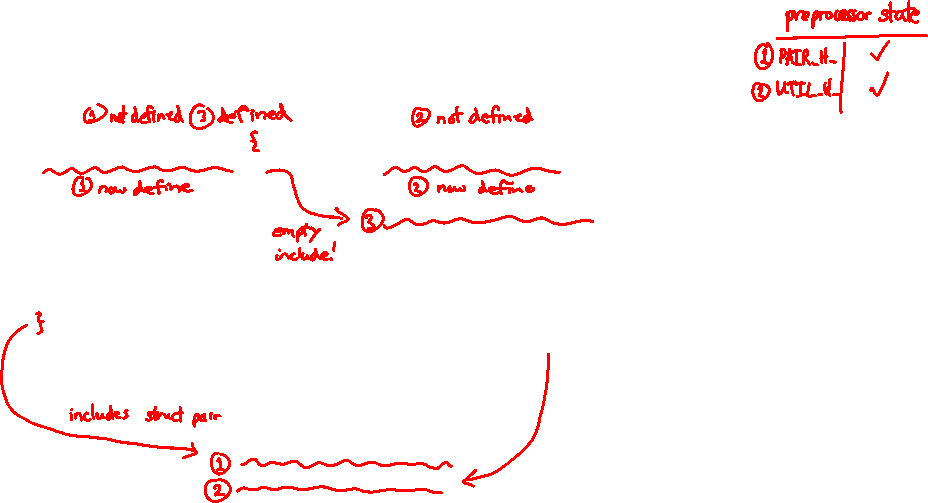 preprocessor state
① PAIR_H_
② UTIL_H_
① not defined ③ defined
{
② not defined
① now define
② now define
③
empty
include!
}
includes struct pair
①
②